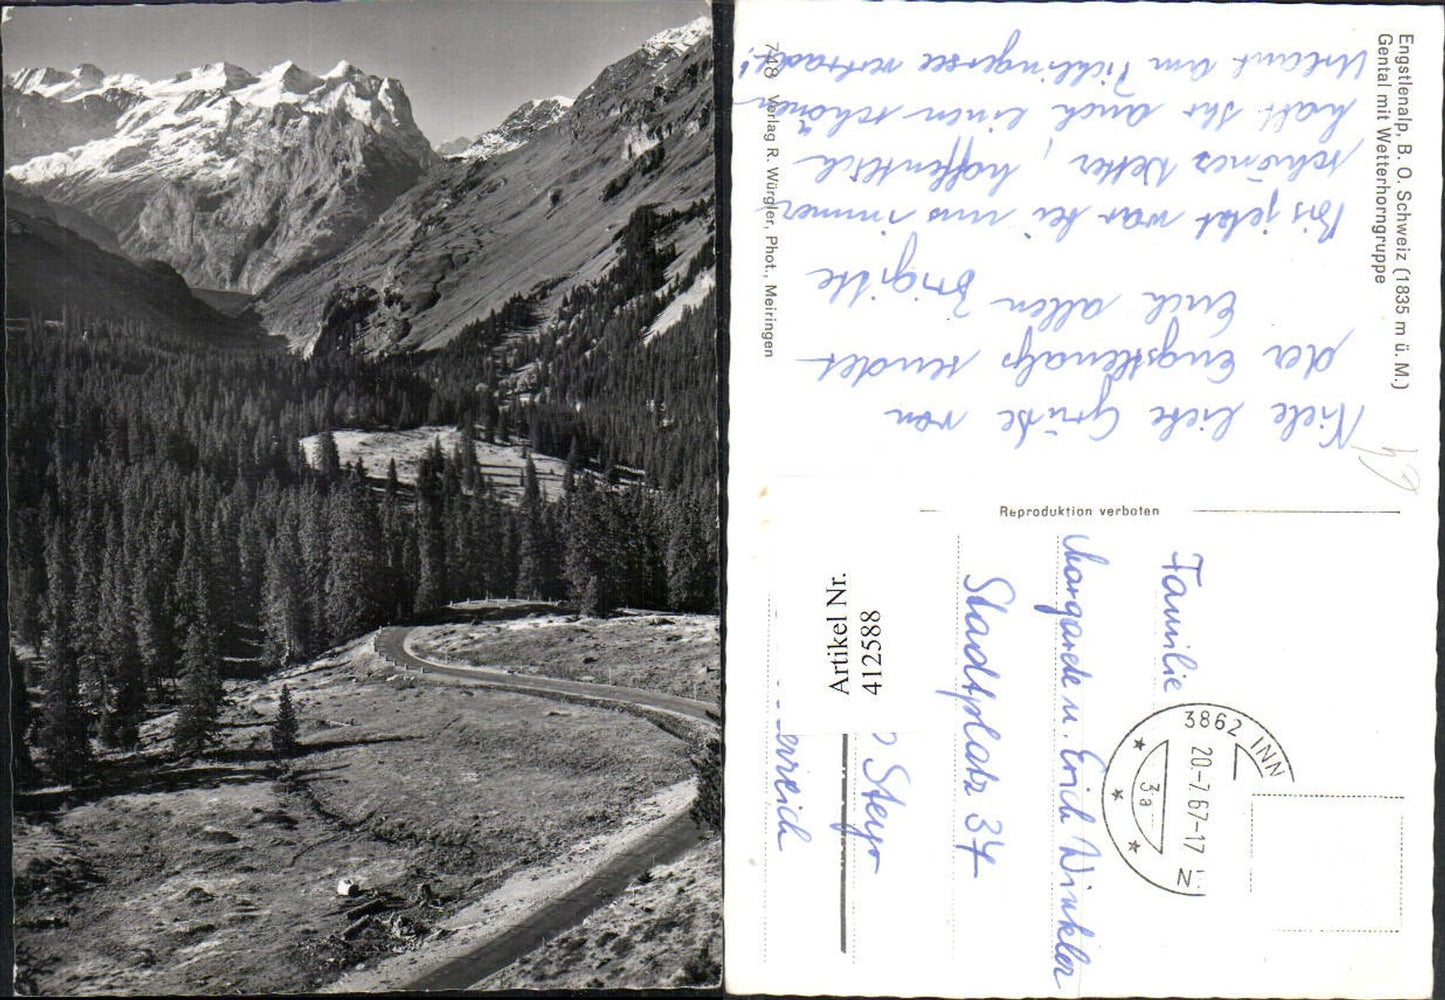 Engstlenalp, B. O. Schweiz (1835 m ü. M.)
Gental mit Wetterhorngruppe
748 Verlag R. Würgler, Phot., Meiringen
Reproduktion verboten
Viele liebe Grüße von
der Engstlenalp sendet
Euch allen Brigitte
Bis jetzt war bei uns immer
schönes Wetter, hoffentlich
habt Ihr auch einen schönen
Urlaub am verbracht!
Familie
Margarete u. Erich Winkler
Stadtplatz 34
Steyr
erreich
3862 INN
20.-7.67-17
3a
Artikel Nr.
412588